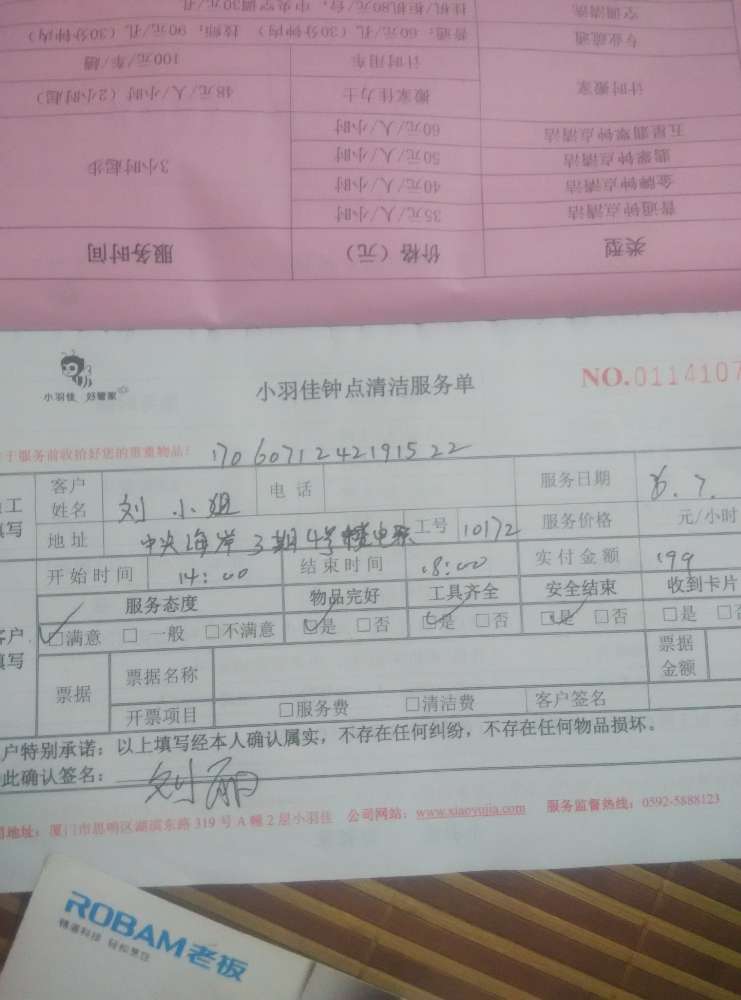 挂机/柜机80元/台，中央空调30元/孔
空调清洗
专业疏通
普通：60元/孔（30分钟）
技师：90元/孔（30分钟内）
计时搬家
搬家佳力士
48元/人/小时（2小时起）
计时用车
100元/车/趟
五星翡翠钟点清洁
60元/人/小时
翡翠钟点清洁
50元/人/小时
金牌钟点清洁
40元/人/小时
普通钟点清洁
35元/人/小时
3小时起步
类型
价格（元）
服务时间
小羽佳 好管家
小羽佳钟点清洁服务单
NO.0114107
于服务前收拾好您的贵重物品！
1706071242191522
工
填写
客户
姓名
刘小姐
电话
服务日期
6.7.
地址
中央海岸3期4号楼
工号
10172
服务价格
元/小时
开始时间
14：00
结束时间
18：00
实付金额
199
客户
填写
服务态度
物品完好
工具齐全
安全结束
收到卡片
□满意 □一般 □不满意
□是 □否
□是 □否
□是 □否
□是
票据
票据名称
票据
金额
开票项目
□服务费
□清洁费
客户签名
户特别承诺：以上填写经本人确认属实，不存在任何纠纷，不存在任何物品损坏。
此确认签名：
刘丽
地址：厦门市思明区湖滨东路319号A幢2层小羽佳 公司网站：www.xiaoyujia.com 服务监督热线：0592-5888123
ROBAM老板
精湛科技 轻松烹饪